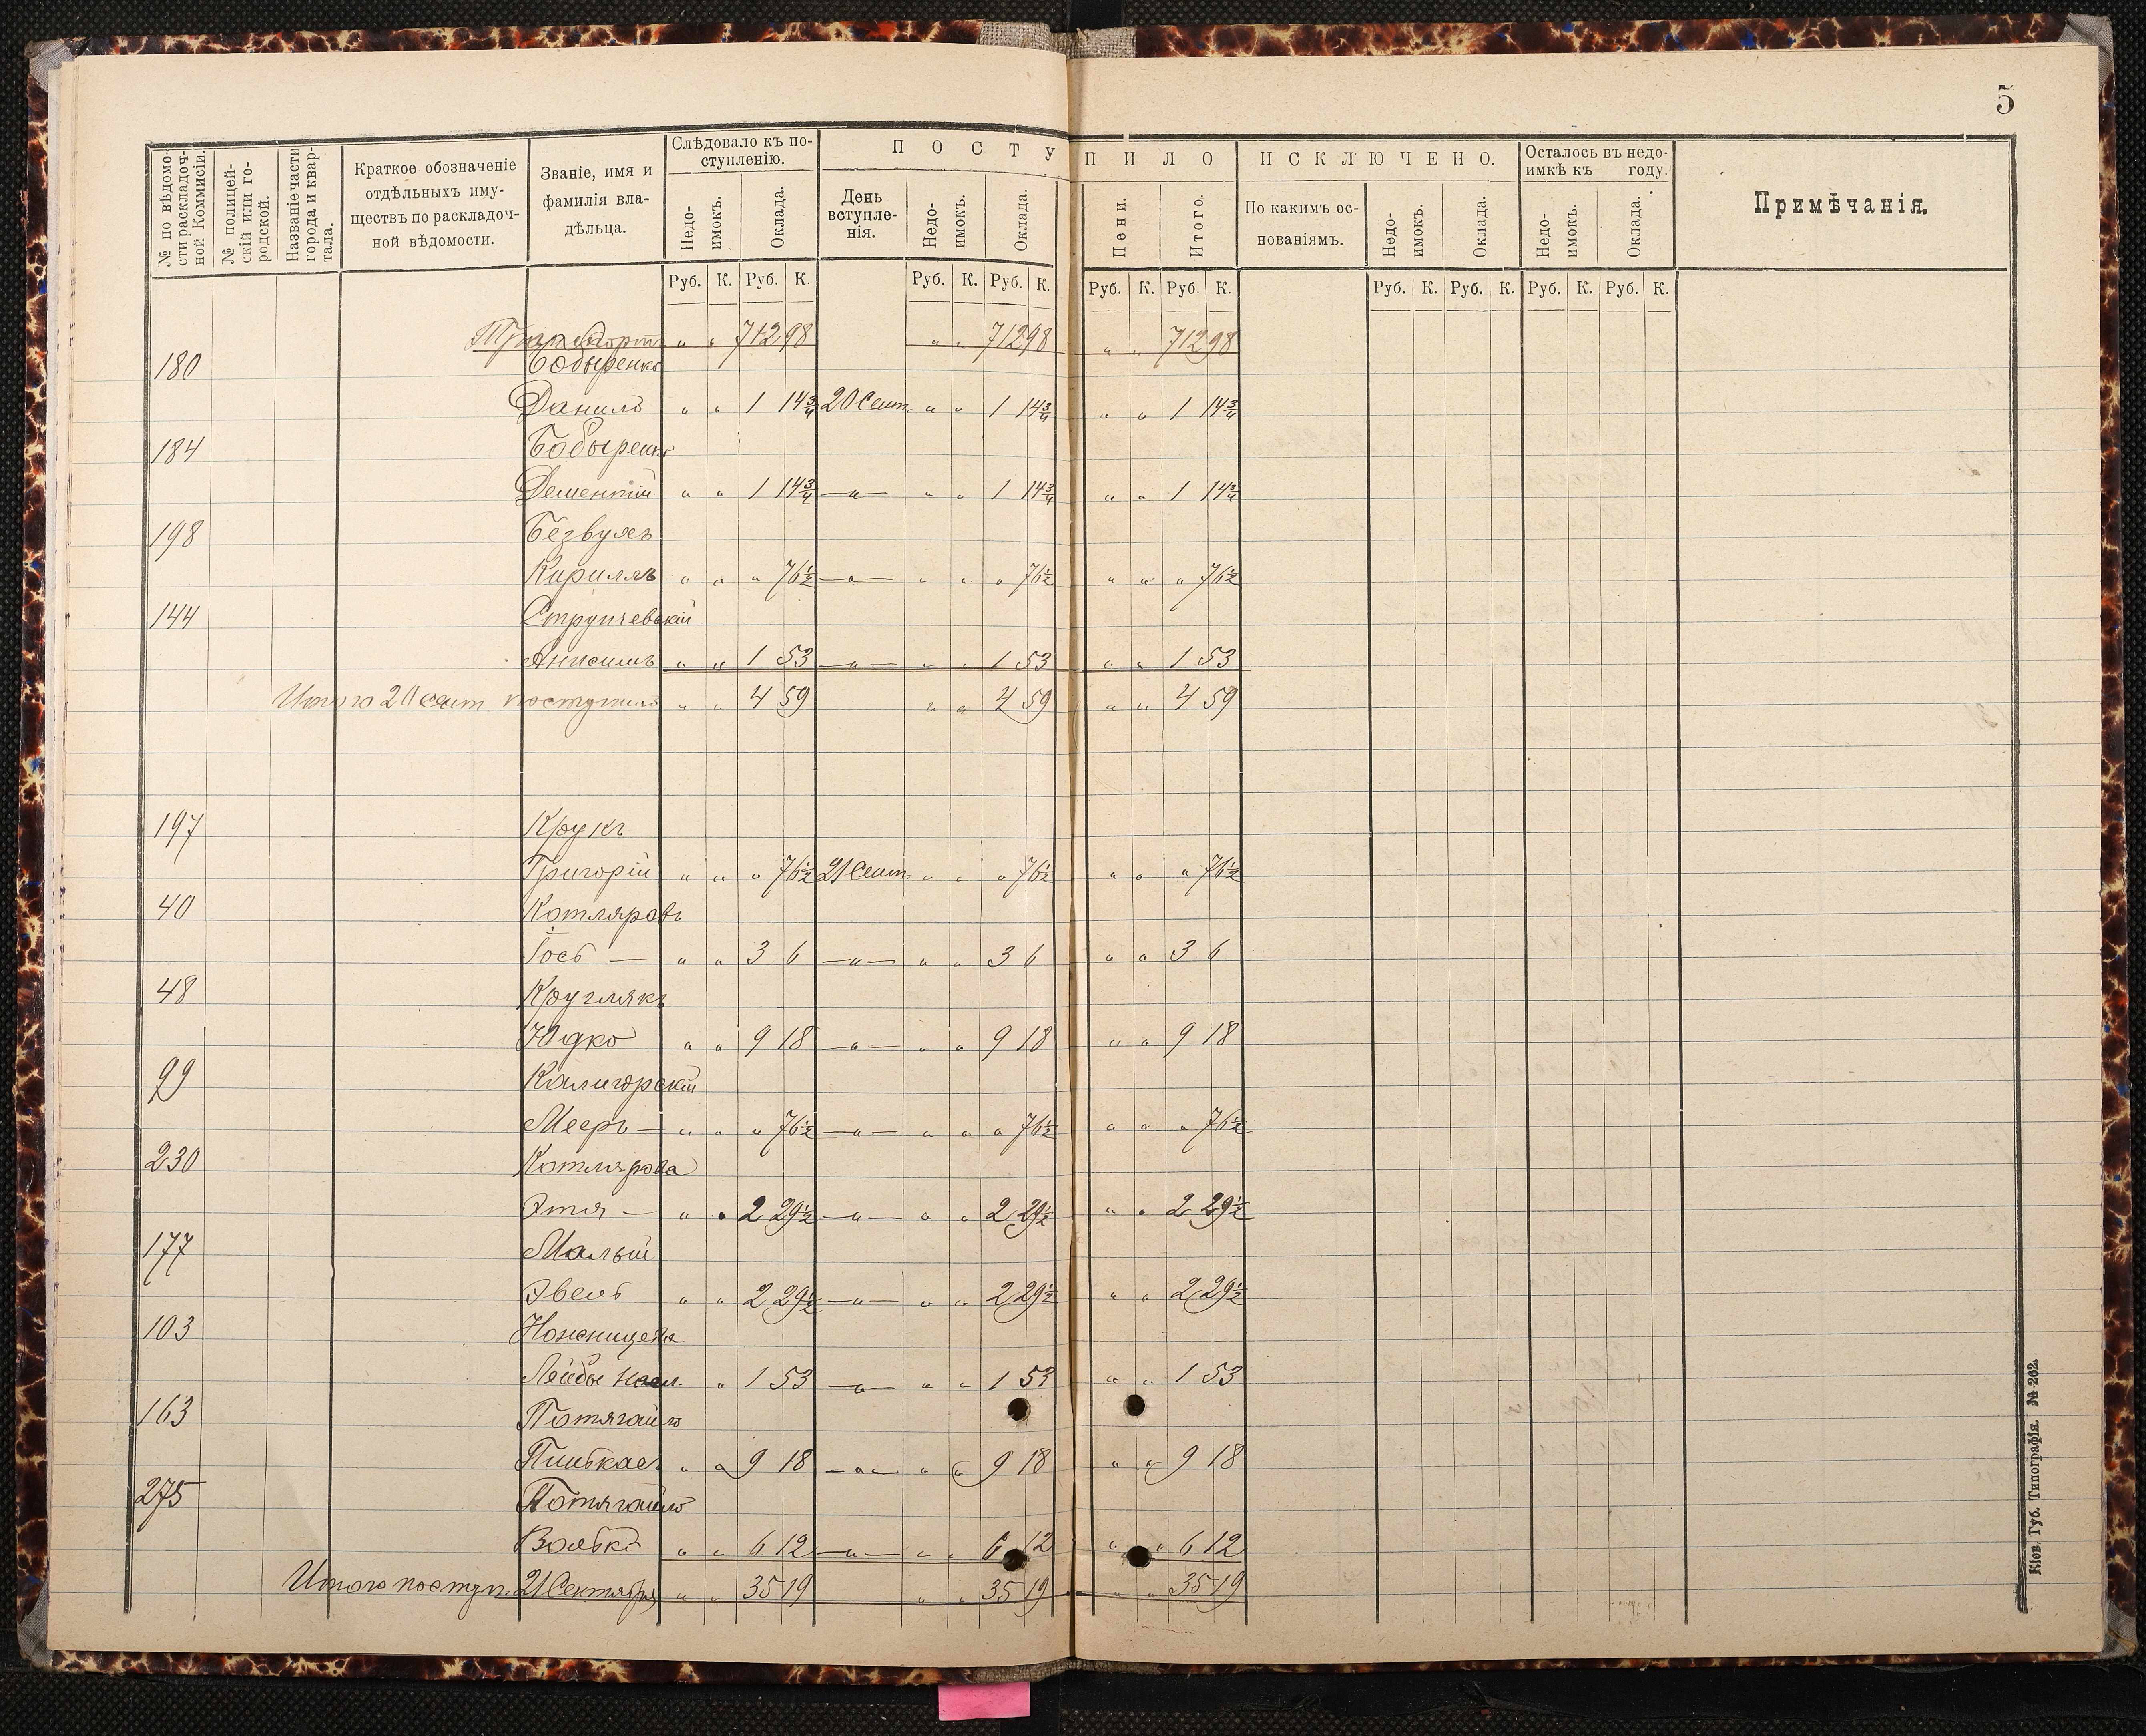 5
№ по вѣдомо-
сти раскладоч-
ной Коммисіи.
№ полицей-
скій или го-
родской.
Названіе части
города и квар-
тала.
Краткое обозначеніе
отдѣльныхъ иму-
ществъ по раскладоч-
ной вѣдомости.
Званіе, имя и
фамилія вла-
дѣльца.
Слѣдовало къ по-
ступленію.
Недо-
имокъ.
Оклада.
ПОСТУПИЛО
День
вступле-
нія.
Недо-
имокъ.
Оклада.
Пени.
Итого.
ИСКЛЮЧЕНО.
По какимъ ос-
нованіямъ.
Недо-
имокъ.
Оклада.
Осталось въ недо-
имкѣ къ году.
Недо-
имокъ.
Оклада.
Примѣчанія.
Руб. К. Руб. К. Руб. К. Руб. К. Руб. К. Руб. К. Руб. К. Руб. К. Руб. К. Руб. К.
Транспортъ " " 712 98 " " 712 98 " " 712 98
180 Бобыренко
Данило " " 1 14¾ 20 Сент. " " 1 14¾ " " 1 14¾
184 Бобыренко
Дементій " " 1 14¾ —"— " " 1 14¾ " " 1 14¾
198 Безвухъ
Кириллъ " " " 76½ —"— " " " 76½ " " " 76½
144 Струтчевскій
Анисимъ " " 1 53 —"— " " 1 53 " " 1 53
Итого 20 сент поступило " " 4 59 " " 4 59 " " 4 59
197 Крукъ
Григорій " " " 76½ 21 Сент. " " " 76½ " " " 76½
40 Котляровъ
Іось — " " 3 6 —"— " " 3 6 " " 3 6
48 Круглякъ
Юдко " " 9 18 —"— " " 9 18 " " 9 18
99 Калигорскій
Мееръ — " " " 76½ —"— " " " 76½ " " " 76½
230 Котлярова
Этя — " " 2 29½ —"— " " 2 29½ " " 2 29½
177 Малый
Эвель " " 2 29½ —"— " " 2 29½ " " 2 29½
103 Ножницева
Лейбы насл. " 1 53 —"— " " 1 53 " " 1 53
163 Потягайло
Пинькасъ " " 9 18 —"— " " 9 18 " " 9 18
275 Потягайло
Волько " " 6 12 —"— " " 6 12 " " 6 12
Итого поступ. 21 Сентября " " 35 19 " " 35 19 " " 35 19
Кіев. Губ. Типографія. № 262.